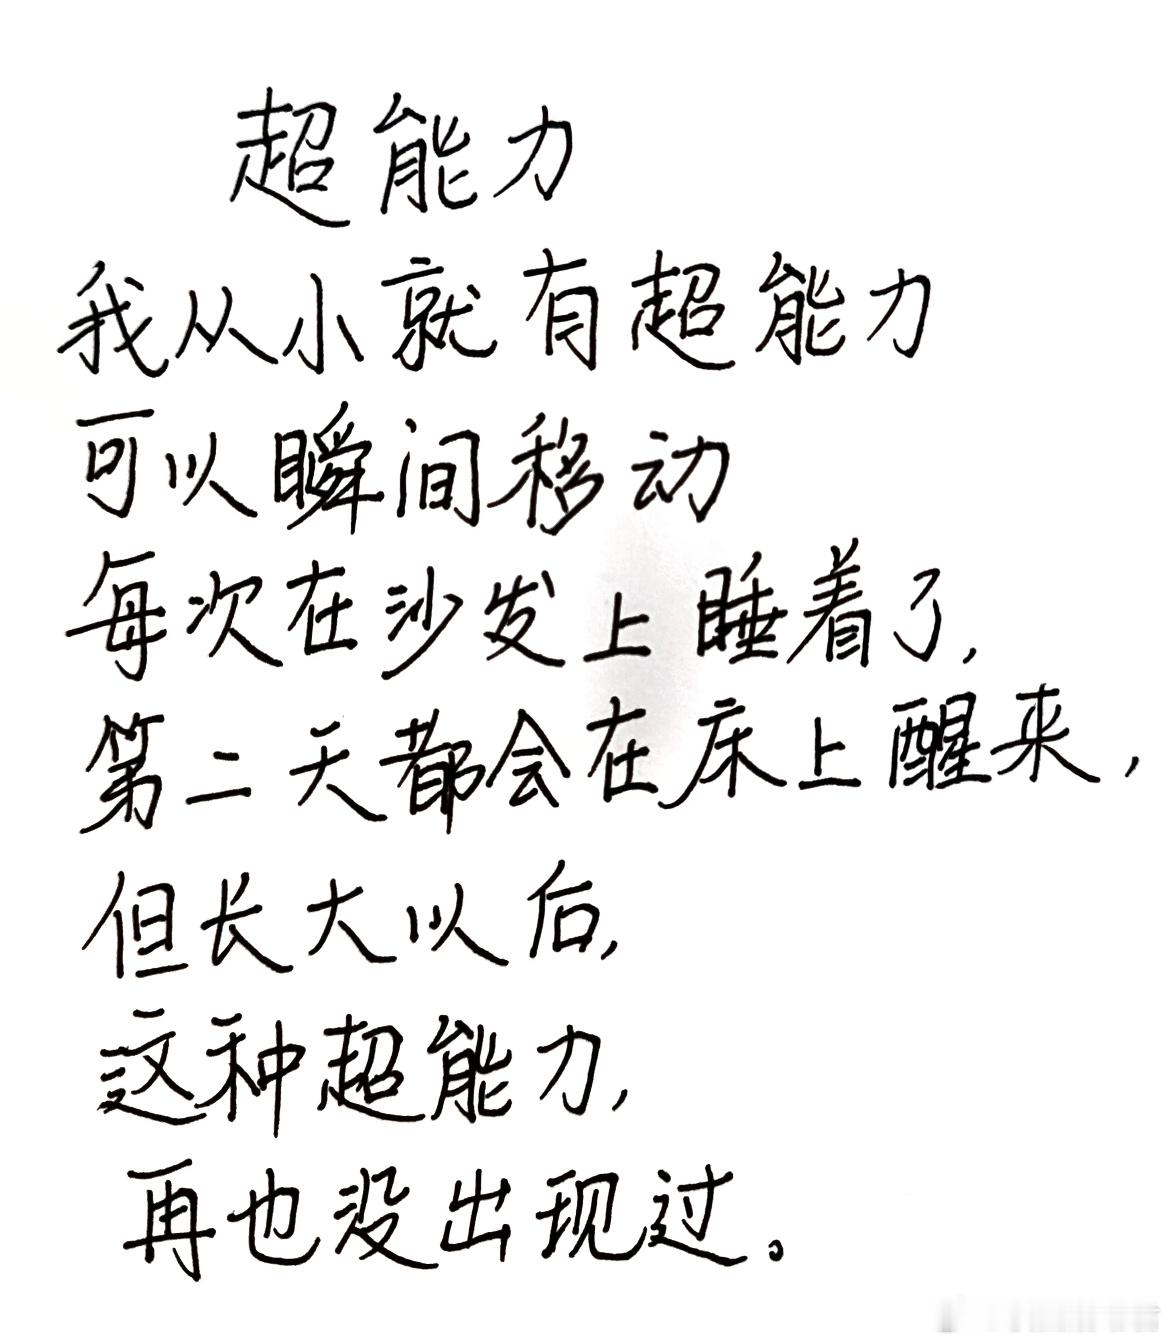 超能力
我从小就有超能力
可以瞬间移动
每次在沙发上睡着了,
第二天都会在床上醒来,
但长大以后,
这种超能力,
再也没出现过。